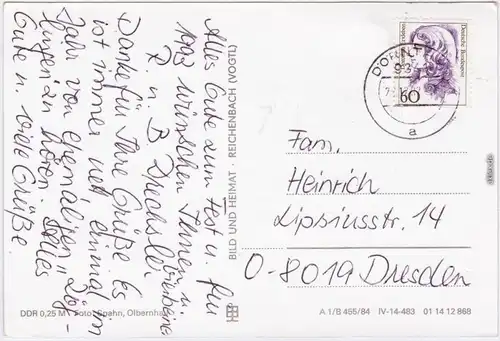 Alles Gute zum Fest u. für
1993 wünschen Ihnen u.
R. u. B. Drechsler
Danke für Ihre Grüße. Es
ist immer nett einmal im
Jahr von ehemaligen
zu hören. Alles
Gute u. viele Grüße.
BILD UND HEIMAT · REICHENBACH (VOGTL)
DDR 0,25 M Foto: Spehn, Olbernhau
Deutsche Bundespost
60
a
Fam.
Heinrich
Lipsiusstr. 14
O-8019 Dresden
A 1/B 465/84 IV-14-483 01 14 12 868